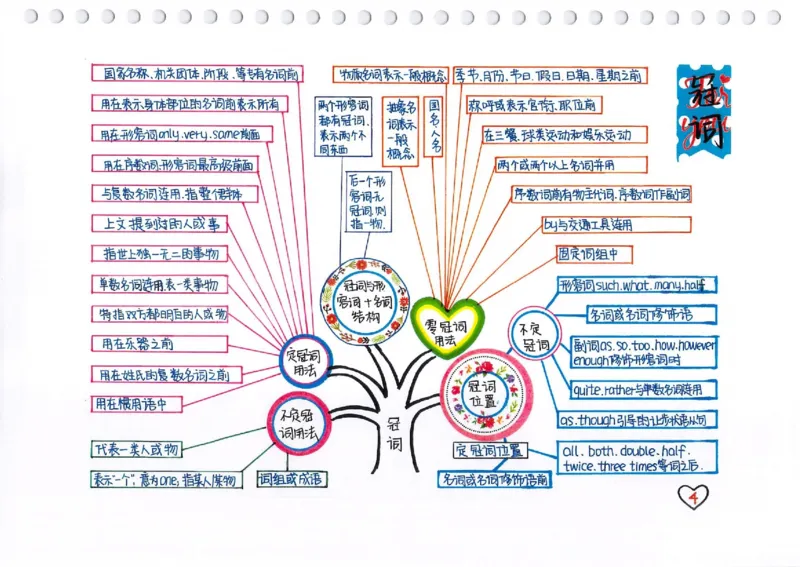 冠词
国家名称、机关团体、阶段、等专有名词前
用在表示身体部位的名词前表示所有
用在形容词only.very.same前面
用在序数词.形容词最高级前面
与复数名词连用.指整个群体
上文提到过的人或事
指世上独一无二的事物
单数名词连用表一类事物
特指双方都明白的人或物
用在乐器之前
用在姓氏的复数名词之前
用在惯用语中
定冠词
用法
两个形容词
都有冠词.
表示两个不
同东西
后一个形
容词无
冠词.则
指一物.
冠词与形
容词+名词
结构
物质名词表示一般概念
抽象名
词表示
一般
概念
国名人名
季节.月份.节日.假日.日期.星期之前
称呼或表示官衔.职位前
在三餐.球类运动和娱乐运动
两个或两个以上名词并用
序数词前有物主代词.序数词作副词
by与交通工具连用
固定词组中
零冠词
用法
不定冠
词用法
代表一类人或物
表示"一个".意为one;指某人某物
词组或成语
冠词
冠词
位置
不定
冠词
形容词such.what.many.half
名词或名词修饰语
副词as.so.too.how.however
enough修饰形容词时
quite.rather与单数名词连用
as.though引导的让步状语从句
定冠词位置
all.both.double.half.
twice.three times等词之后.
名词或名词修饰语前
4